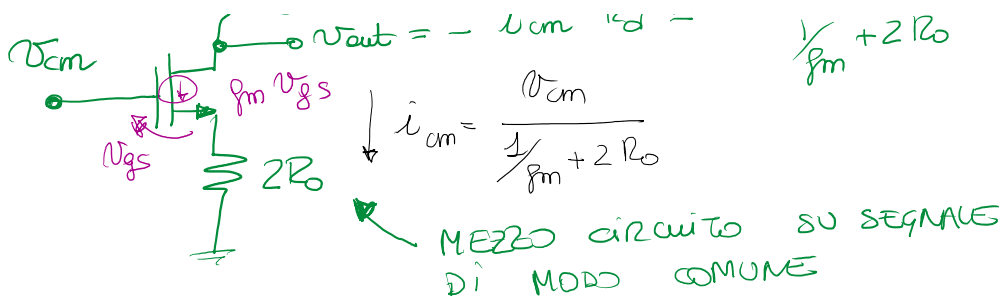 vcm
vout = - icm Rd =
1/gm + 2R0
gm vgs
vgs
2R0
icm = vcm / (1/gm + 2R0)
MEZZO CIRCUITO SU SEGNALE
DI MODO COMUNE